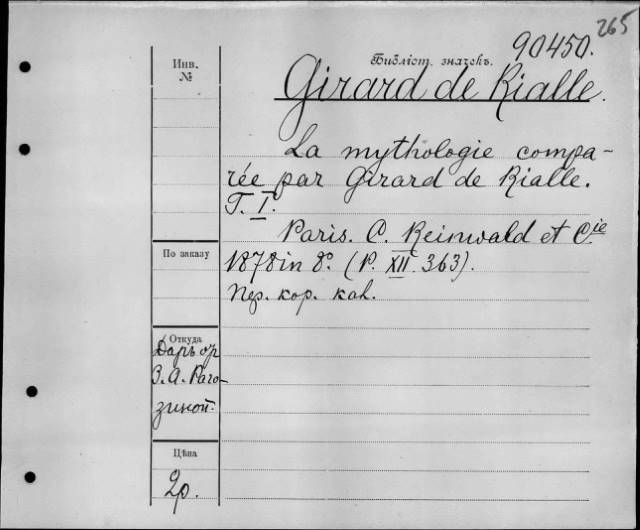 265
90450.
Библіот. значекъ.
Girard de Rialle.
Инв.
№
La mythologie compa-
rée par Girard de Rialle.
T. I.
Paris. C. Reinwald et Cie
По заказу
1878 in 8°. (P. XII. 363).
Пер. кор. кал.
Откуда
Даръ от
З. А. Раго-
зиной.
Цѣна
2р.